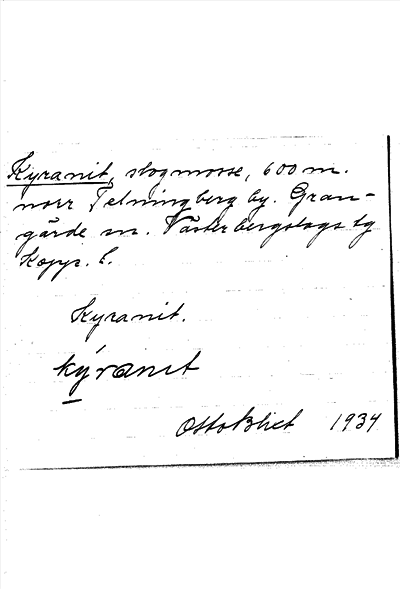 Kyranit, slogmosse, 600 m.
norr Telningberg by. Gran-
gärde sn. Västerbergslags tg
Kopp. l.
Kyranit.
kýranıt
Otto Blixt 1934